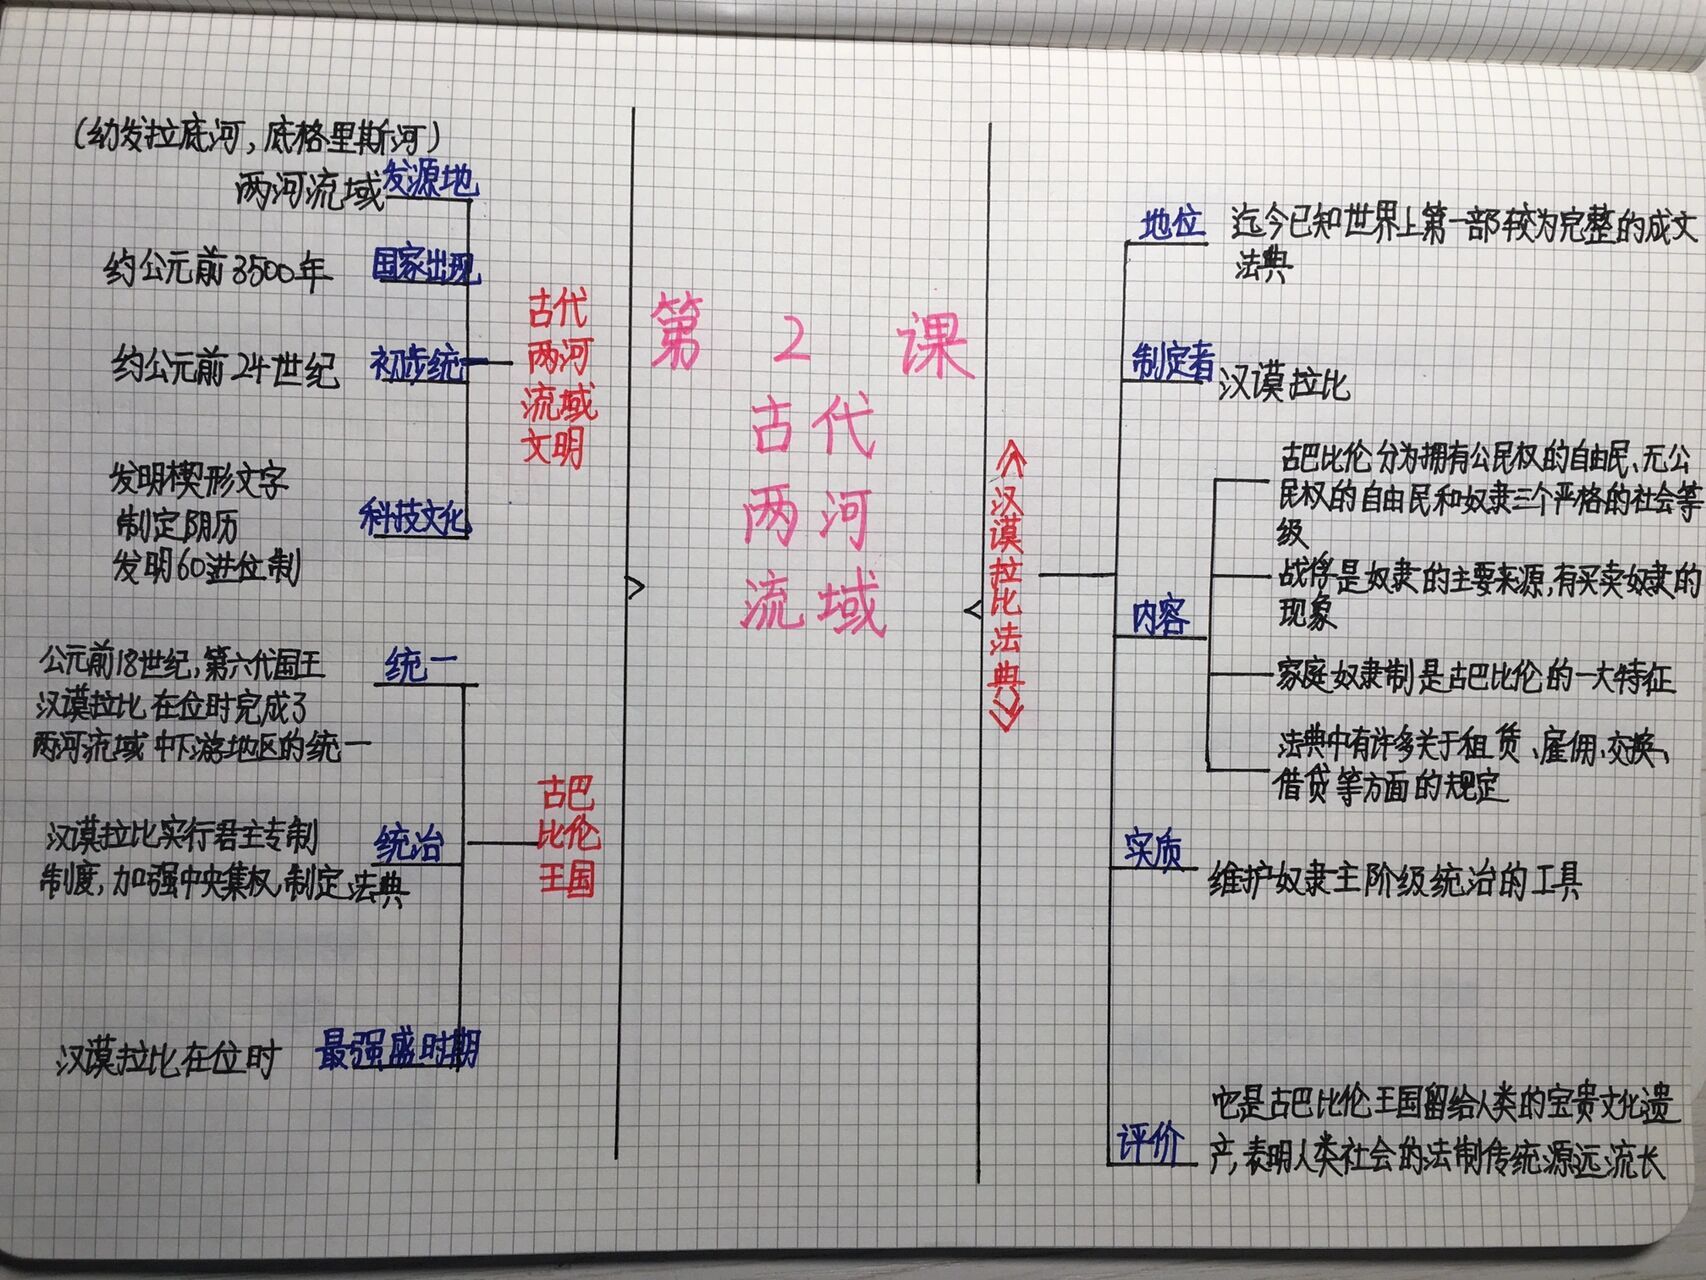 第2课
古代
两河
流域
古代
两河
流域
文明
发源地
(幼发拉底河,底格里斯河)
两河流域
国家出现
约公元前3500年
初步统一
约公元前24世纪
科技文化
发明楔形文字
制定阴历
发明60进位制
古巴
比伦
王国
统一
公元前18世纪,第六代国王
汉谟拉比在位时完成了
两河流域中下游地区的统一
统治
汉谟拉比实行君主专制
制度,加强中央集权,制定法典
最强盛时期
汉谟拉比在位时
《汉谟拉比法典》
地位
迄今已知世界上第一部较为完整的成文
法典
制定者
汉谟拉比
内容
古巴比伦分为拥有公民权的自由民、无公
民权的自由民和奴隶三个严格的社会等
级
战俘是奴隶的主要来源,有买卖奴隶的
现象
家庭奴隶制是古巴比伦的一大特征
法典中有许多关于租赁、雇佣、交换、
借贷等方面的规定
实质
维护奴隶主阶级统治的工具
评价
它是古巴比伦王国留给人类的宝贵文化遗
产,表明人类社会的法制传统源远流长